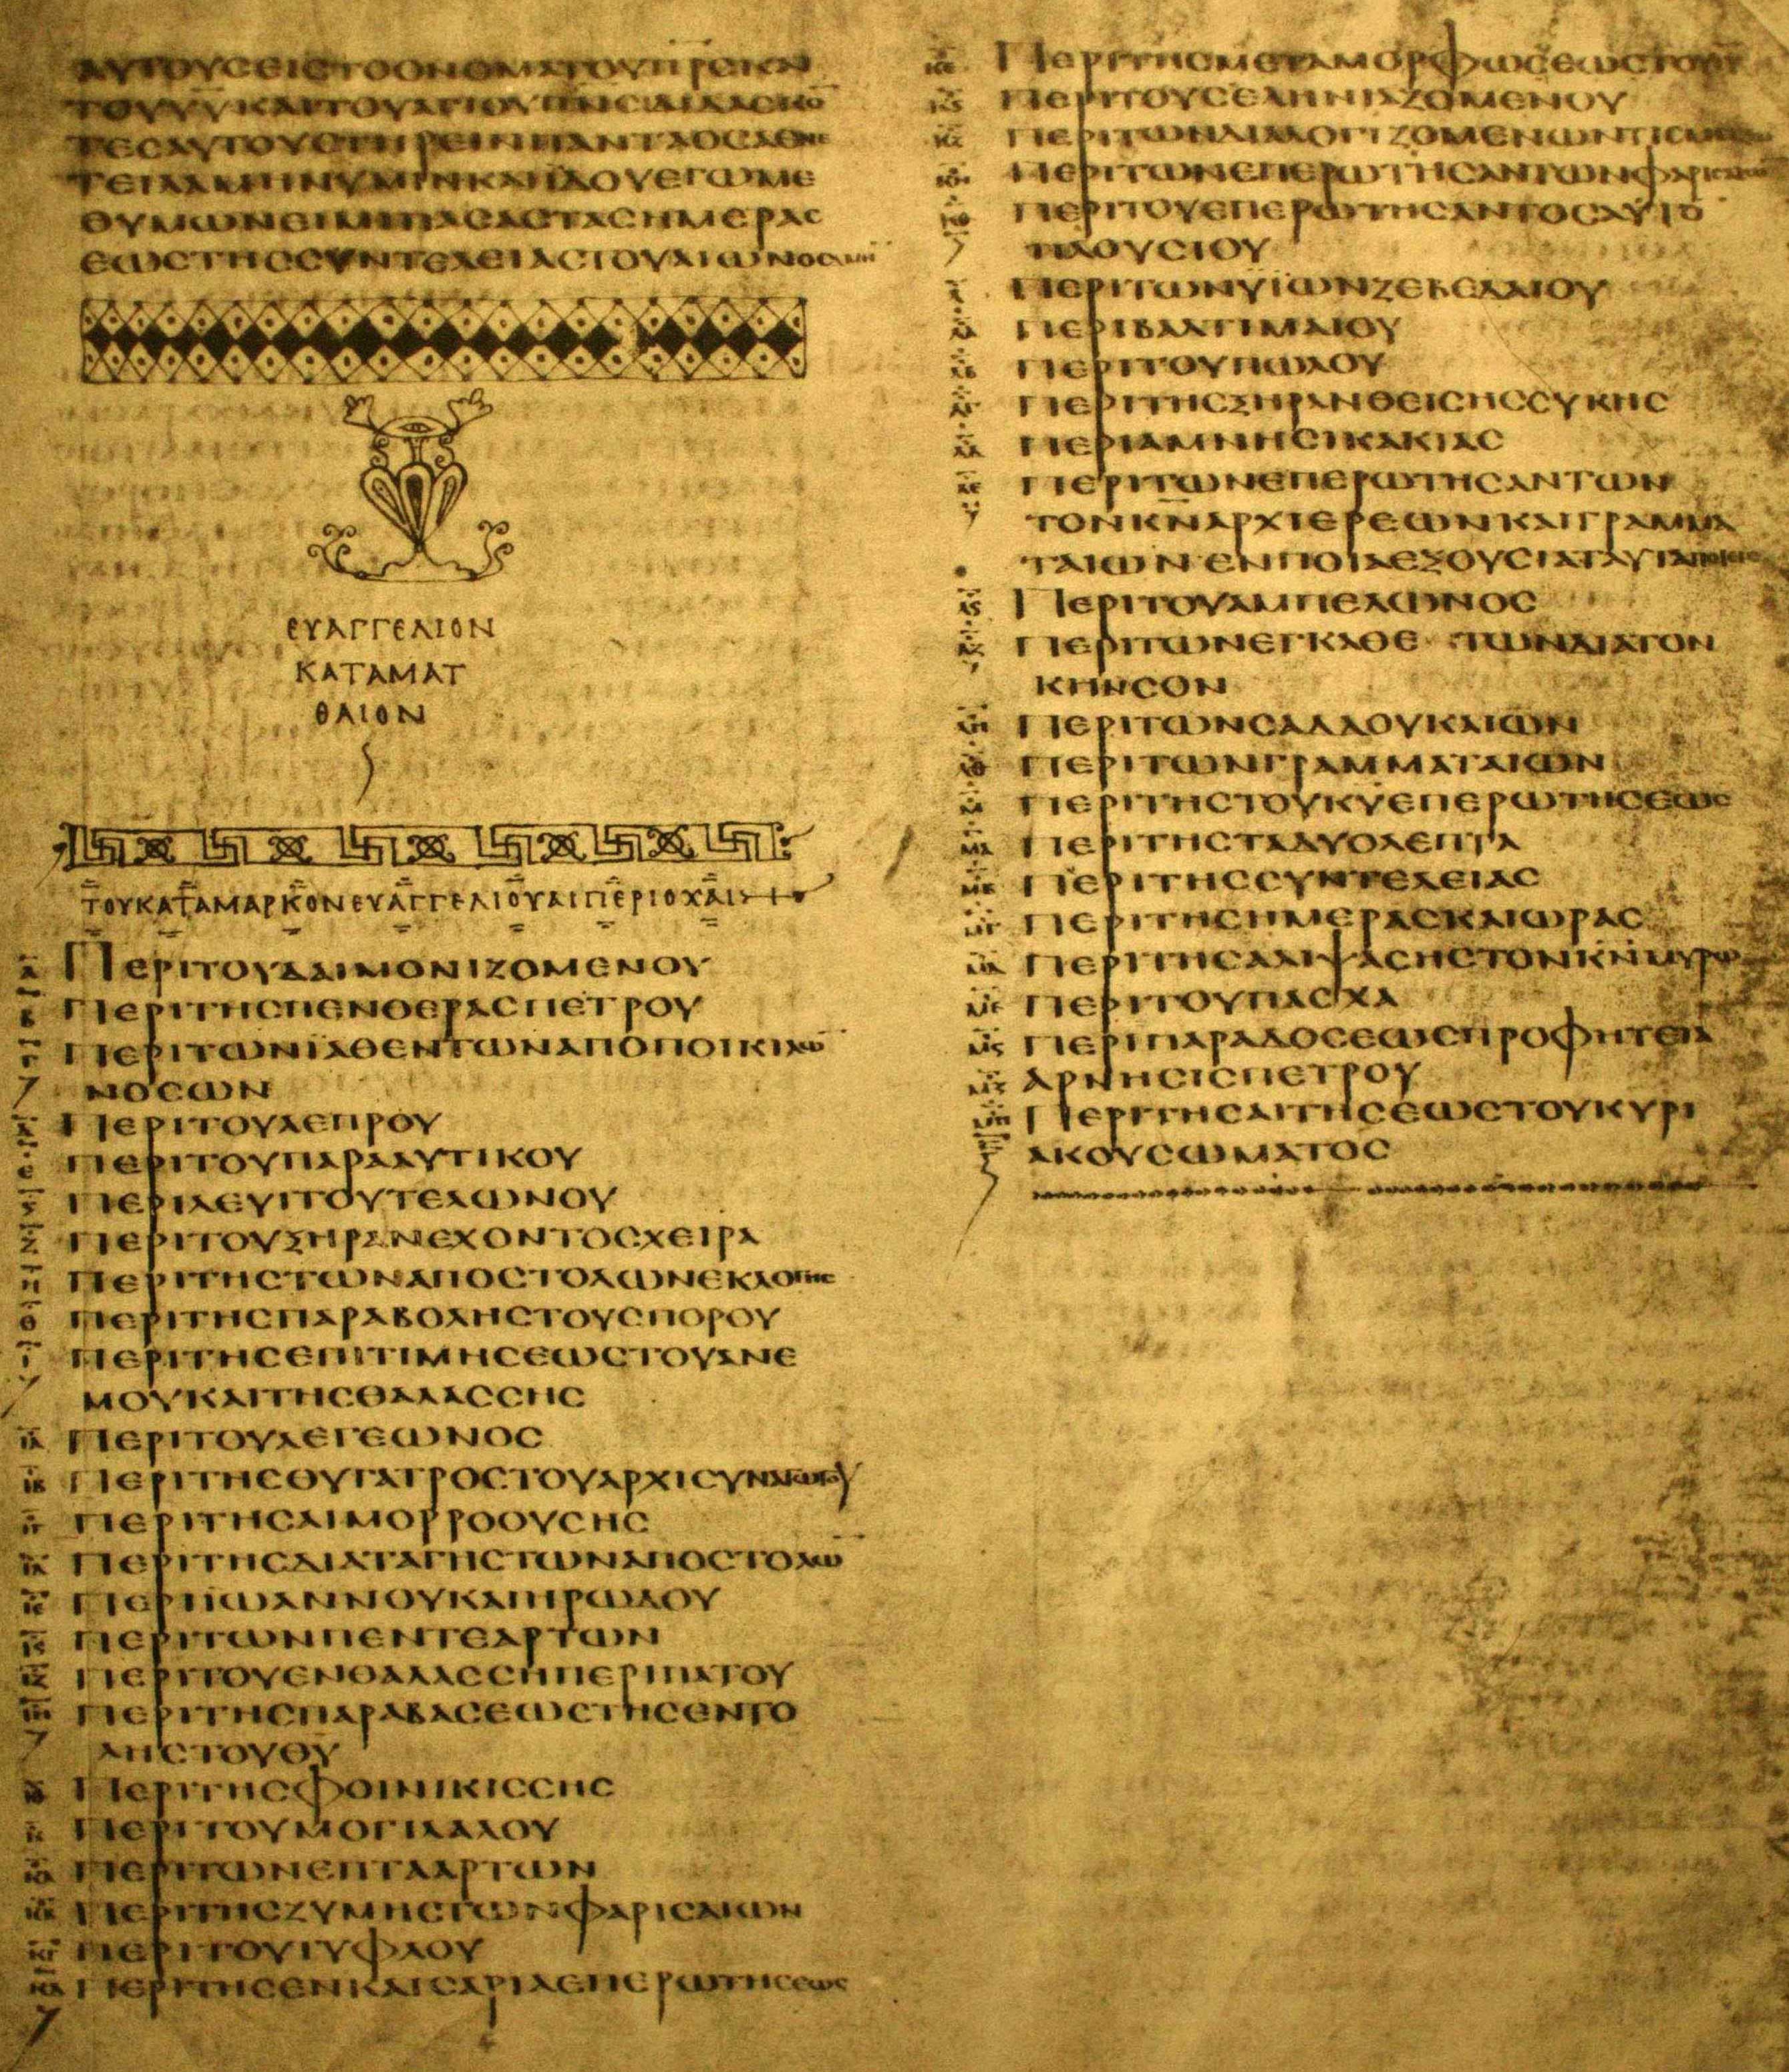 ΑΥΤΟΥΣΕΙΣΤΟΟΝΟΜΑΤΟΥΠΡΣΚΑΙ
ΤΟΥΥΥΚΑΙΤΟΥΑΓΙΟΥΠΝΣΔΙΔΑΣΚΟ̅
ΤΕΣΑΥΤΟΥΣΤΗΡΕΙΝΠΑΝΤΑΟΣΑΕΝΕ
ΤΕΙΛΑΜΗΝΥΜΙΝΚΑΙΙΔΟΥΕΓΩΜΕ
ΘΥΜΩΝΕΙΜΙΠΑΣΑΣΤΑΣΗΜΕΡΑΣ
ΕΩΣΤΗΣΣΥΝΤΕΛΕΙΑΣΤΟΥΑΙΩΝΟΣΑΜΗ̅
ΕΥΑΓΓΕΛΙΟΝ
ΚΑΤΑΜΑΤ
ΘΑΙΟΝ
ΤΟΥΚΑΤΑΜΑΡΚΟΝΕΥΑΓΓΕΛΙΟΥΑΙΠΕΡΙΟΧΑΙ
Α ΠΕΡΙΤΟΥΔΑΙΜΟΝΙΖΟΜΕΝΟΥ
Β ΠΕΡΙΤΗΣΠΕΝΘΕΡΑΣΠΕΤΡΟΥ
Γ ΠΕΡΙΤΩΝΙΑΘΕΝΤΩΝΑΠΟΠΟΙΚΙΛΩ̅
ΝΟΣΩΝ
Δ ΠΕΡΙΤΟΥΛΕΠΡΟΥ
Ε ΠΕΡΙΤΟΥΠΑΡΑΛΥΤΙΚΟΥ
Ϛ ΠΕΡΙΛΕΥΙΤΟΥΤΕΛΩΝΟΥ
Ζ ΠΕΡΙΤΟΥΞΗΡΑΝΕΧΟΝΤΟΣΧΕΙΡΑ
Η ΠΕΡΙΤΗΣΤΩΝΑΠΟΣΤΟΛΩΝΕΚΛΟΓΗΣ
Θ ΠΕΡΙΤΗΣΠΑΡΑΒΟΛΗΣΤΟΥΣΠΟΡΟΥ
Ι ΠΕΡΙΤΗΣΕΠΙΤΙΜΗΣΕΩΣΤΟΥΑΝΕ
ΜΟΥΚΑΙΤΗΣΘΑΛΑΣΣΗΣ
ΙΑ ΠΕΡΙΤΟΥΛΕΓΕΩΝΟΣ
ΙΒ ΠΕΡΙΤΗΣΘΥΓΑΤΡΟΣΤΟΥΑΡΧΙΣΥΝΑΓΩΓΟΥ
ΙΓ ΠΕΡΙΤΗΣΑΙΜΟΡΡΟΟΥΣΗΣ
ΙΔ ΠΕΡΙΤΗΣΔΙΑΤΑΓΗΣΤΩΝΑΠΟΣΤΟΛΩ̅
ΙΕ ΠΕΡΙΙΩΑΝΝΟΥΚΑΙΗΡΩΔΟΥ
ΙϚ ΠΕΡΙΤΩΝΠΕΝΤΕΑΡΤΩΝ
ΙΖ ΠΕΡΙΤΟΥΕΝΘΑΛΑΣΣΗΠΕΡΙΠΑΤΟΥ
ΙΗ ΠΕΡΙΤΗΣΠΑΡΑΒΑΣΕΩΣΤΗΣΕΝΤΟ
ΛΗΣΤΟΥΘΥ
ΙΘ ΠΕΡΙΤΗΣΦΟΙΝΙΚΙΣΣΗΣ
Κ ΠΕΡΙΤΟΥΜΟΓΙΛΑΛΟΥ
ΚΑ ΠΕΡΙΤΩΝΕΠΤΑΑΡΤΩΝ
ΚΒ ΠΕΡΙΤΗΣΖΥΜΗΣΤΩΝΦΑΡΙΣΑΙΩΝ
ΚΓ ΠΕΡΙΤΟΥΤΥΦΛΟΥ
ΚΔ ΠΕΡΙΤΗΣΕΝΚΑΙΣΑΡΙΑΕΠΕΡΩΤΗΣΕΩΣ
ΚΕ ΠΕΡΙΤΗΣΜΕΤΑΜΟΡΦΩΣΕΩΣΤΟΥΙΥ
ΚϚ ΠΕΡΙΤΟΥΣΕΛΗΝΙΑΖΟΜΕΝΟΥ
ΚΖ ΠΕΡΙΤΩΝΔΙΑΛΟΓΙΖΟΜΕΝΩΝΤΙΣΜΕΙΖΩΝ
ΚΗ ΠΕΡΙΤΩΝΕΠΕΡΩΤΗΣΑΝΤΩΝΦΑΡΙΣΑΙΩΝ
ΚΘ ΠΕΡΙΤΟΥΕΠΕΡΩΤΗΣΑΝΤΟΣΑΥΤΟ̅
ΠΛΟΥΣΙΟΥ
Λ ΠΕΡΙΤΩΝΥΙΩΝΖΕΒΕΔΑΙΟΥ
ΛΑ ΠΕΡΙΒΑΡΤΙΜΑΙΟΥ
ΛΒ ΠΕΡΙΤΟΥΠΩΛΟΥ
ΛΓ ΠΕΡΙΤΗΣΞΗΡΑΝΘΕΙΣΗΣΣΥΚΗΣ
ΛΔ ΠΕΡΙΑΜΝΗΣΙΚΑΚΙΑΣ
ΛΕ ΠΕΡΙΤΩΝΕΠΕΡΩΤΗΣΑΝΤΩΝ
ΤΟΝΚΝΑΡΧΙΕΡΕΩΝΚΑΙΓΡΑΜΜΑ
ΤΑΙΩΝΕΝΠΟΙΑΕΞΟΥΣΙΑΤΑΥΤΑΠΟΙΕΙΣ
ΛϚ ΠΕΡΙΤΟΥΑΜΠΕΛΩΝΟΣ
ΛΖ ΠΕΡΙΤΩΝΕΓΚΑΘΕ ΤΩΝΔΙΑΤΟΝ
ΚΗΝΣΟΝ
ΛΗ ΠΕΡΙΤΩΝΣΑΔΔΟΥΚΑΙΩΝ
ΛΘ ΠΕΡΙΤΩΝΓΡΑΜΜΑΤΑΙΩΝ
Μ ΠΕΡΙΤΗΣΤΟΥΚΥΕΠΕΡΩΤΗΣΕΩΣ
ΜΑ ΠΕΡΙΤΗΣΤΑΔΥΟΛΕΠΤΑ
ΜΒ ΠΕΡΙΤΗΣΣΥΝΤΕΛΕΙΑΣ
ΜΓ ΠΕΡΙΤΗΣΗΜΕΡΑΣΚΑΙΩΡΑΣ
ΜΔ ΠΕΡΙΤΗΣΑΛΙΨΑΣΗΣΤΟΝΚΝΜΥΡΩ
ΜΕ ΠΕΡΙΤΟΥΠΑΣΧΑ
ΜϚ ΠΕΡΙΠΑΡΑΔΟΣΕΩΣΠΡΟΦΗΤΕΙΑ
ΜΖ ΑΡΝΗΣΙΣΠΕΤΡΟΥ
ΜΗ ΠΕΡΙΤΗΣΑΙΤΗΣΕΩΣΤΟΥΚΥΡΙ
ΑΚΟΥΣΩΜΑΤΟΣ